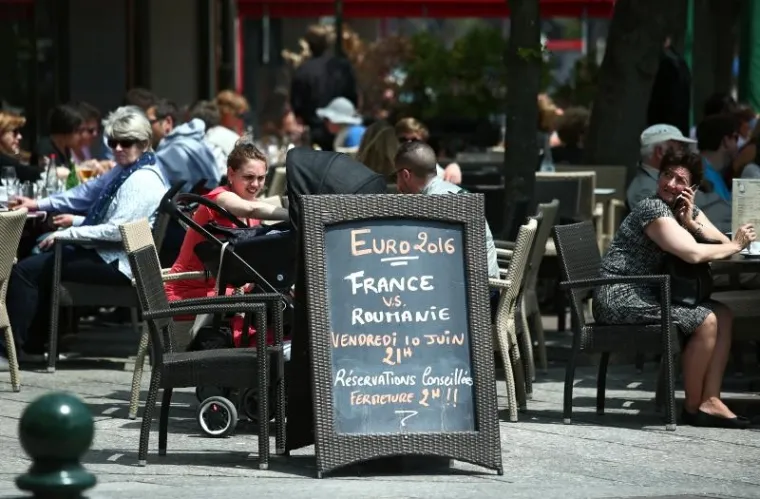 EURO 2016
FRANCE
V.S.
ROUMANIE
VENDREDI 10 JUIN
21H
RÉSERVATIONS CONSEILLÉES
FERMETURE 2H !!